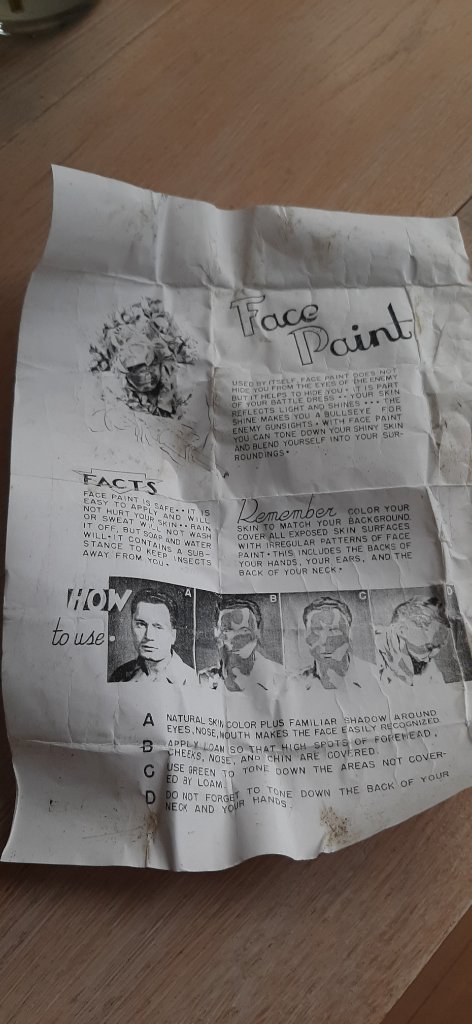 Face
Paint
USED BY ITSELF, FACE PAINT DOES NOT
HIDE YOU FROM THE EYES OF THE ENEMY
BUT IT HELPS TO HIDE YOU • IT IS PART
OF YOUR BATTLE DRESS • • YOUR SKIN
REFLECTS LIGHT AND SHINES • • THE
SHINE MAKES YOU A BULLSEYE FOR
ENEMY GUNSIGHTS • WITH FACE PAINT
YOU CAN TONE DOWN YOUR SHINY SKIN
AND BLEND YOURSELF INTO YOUR SUR-
ROUNDINGS •
FACTS
FACE PAINT IS SAFE • • IT IS
EASY TO APPLY AND WILL
NOT HURT YOUR SKIN • • RAIN
OR SWEAT WILL NOT WASH
IT OFF, BUT SOAP AND WATER
WILL • IT CONTAINS A SUB-
STANCE TO KEEP INSECTS
AWAY FROM YOU •
Remember COLOR YOUR
SKIN TO MATCH YOUR BACKGROUND.
COVER ALL EXPOSED SKIN SURFACES
WITH IRREGULAR PATTERNS OF FACE
PAINT • THIS INCLUDES THE BACKS OF
YOUR HANDS, YOUR EARS, AND THE
BACK OF YOUR NECK •
HOW
to use •
A
B
C
D
A NATURAL SKIN COLOR PLUS FAMILIAR SHADOW AROUND
EYES, NOSE, MOUTH MAKES THE FACE EASILY RECOGNIZED.
B APPLY LOAM SO THAT HIGH SPOTS OF FOREHEAD,
CHEEKS, NOSE, AND CHIN ARE COVERED.
C USE GREEN TO TONE DOWN THE AREAS NOT COVER-
ED BY LOAM.
D DO NOT FORGET TO TONE DOWN THE BACK OF YOUR
NECK AND YOUR HANDS.